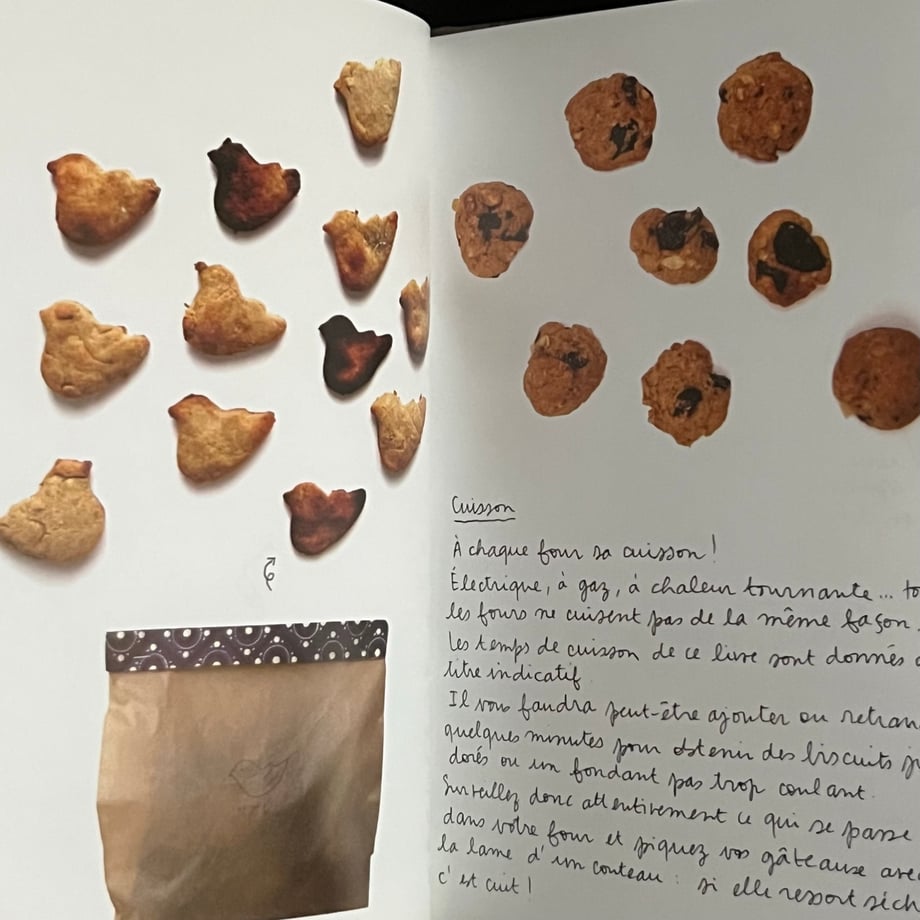 Cuisson
À chaque four sa cuisson !
Électrique, à gaz, à chaleur tournante... to
les fours ne cuisent pas de la même façon.
Les temps de cuisson de ce livre sont donnés
titre indicatif.
Il vous faudra peut-être ajouter ou retran
quelques minutes pour obtenir des biscuits
dorés ou un fondant pas trop coulant.
Surveillez donc attentivement ce qui se passe
dans votre four et piquez vos gâteaux avec
la lame d'un couteau : si elle ressort sèch
c'est cuit !